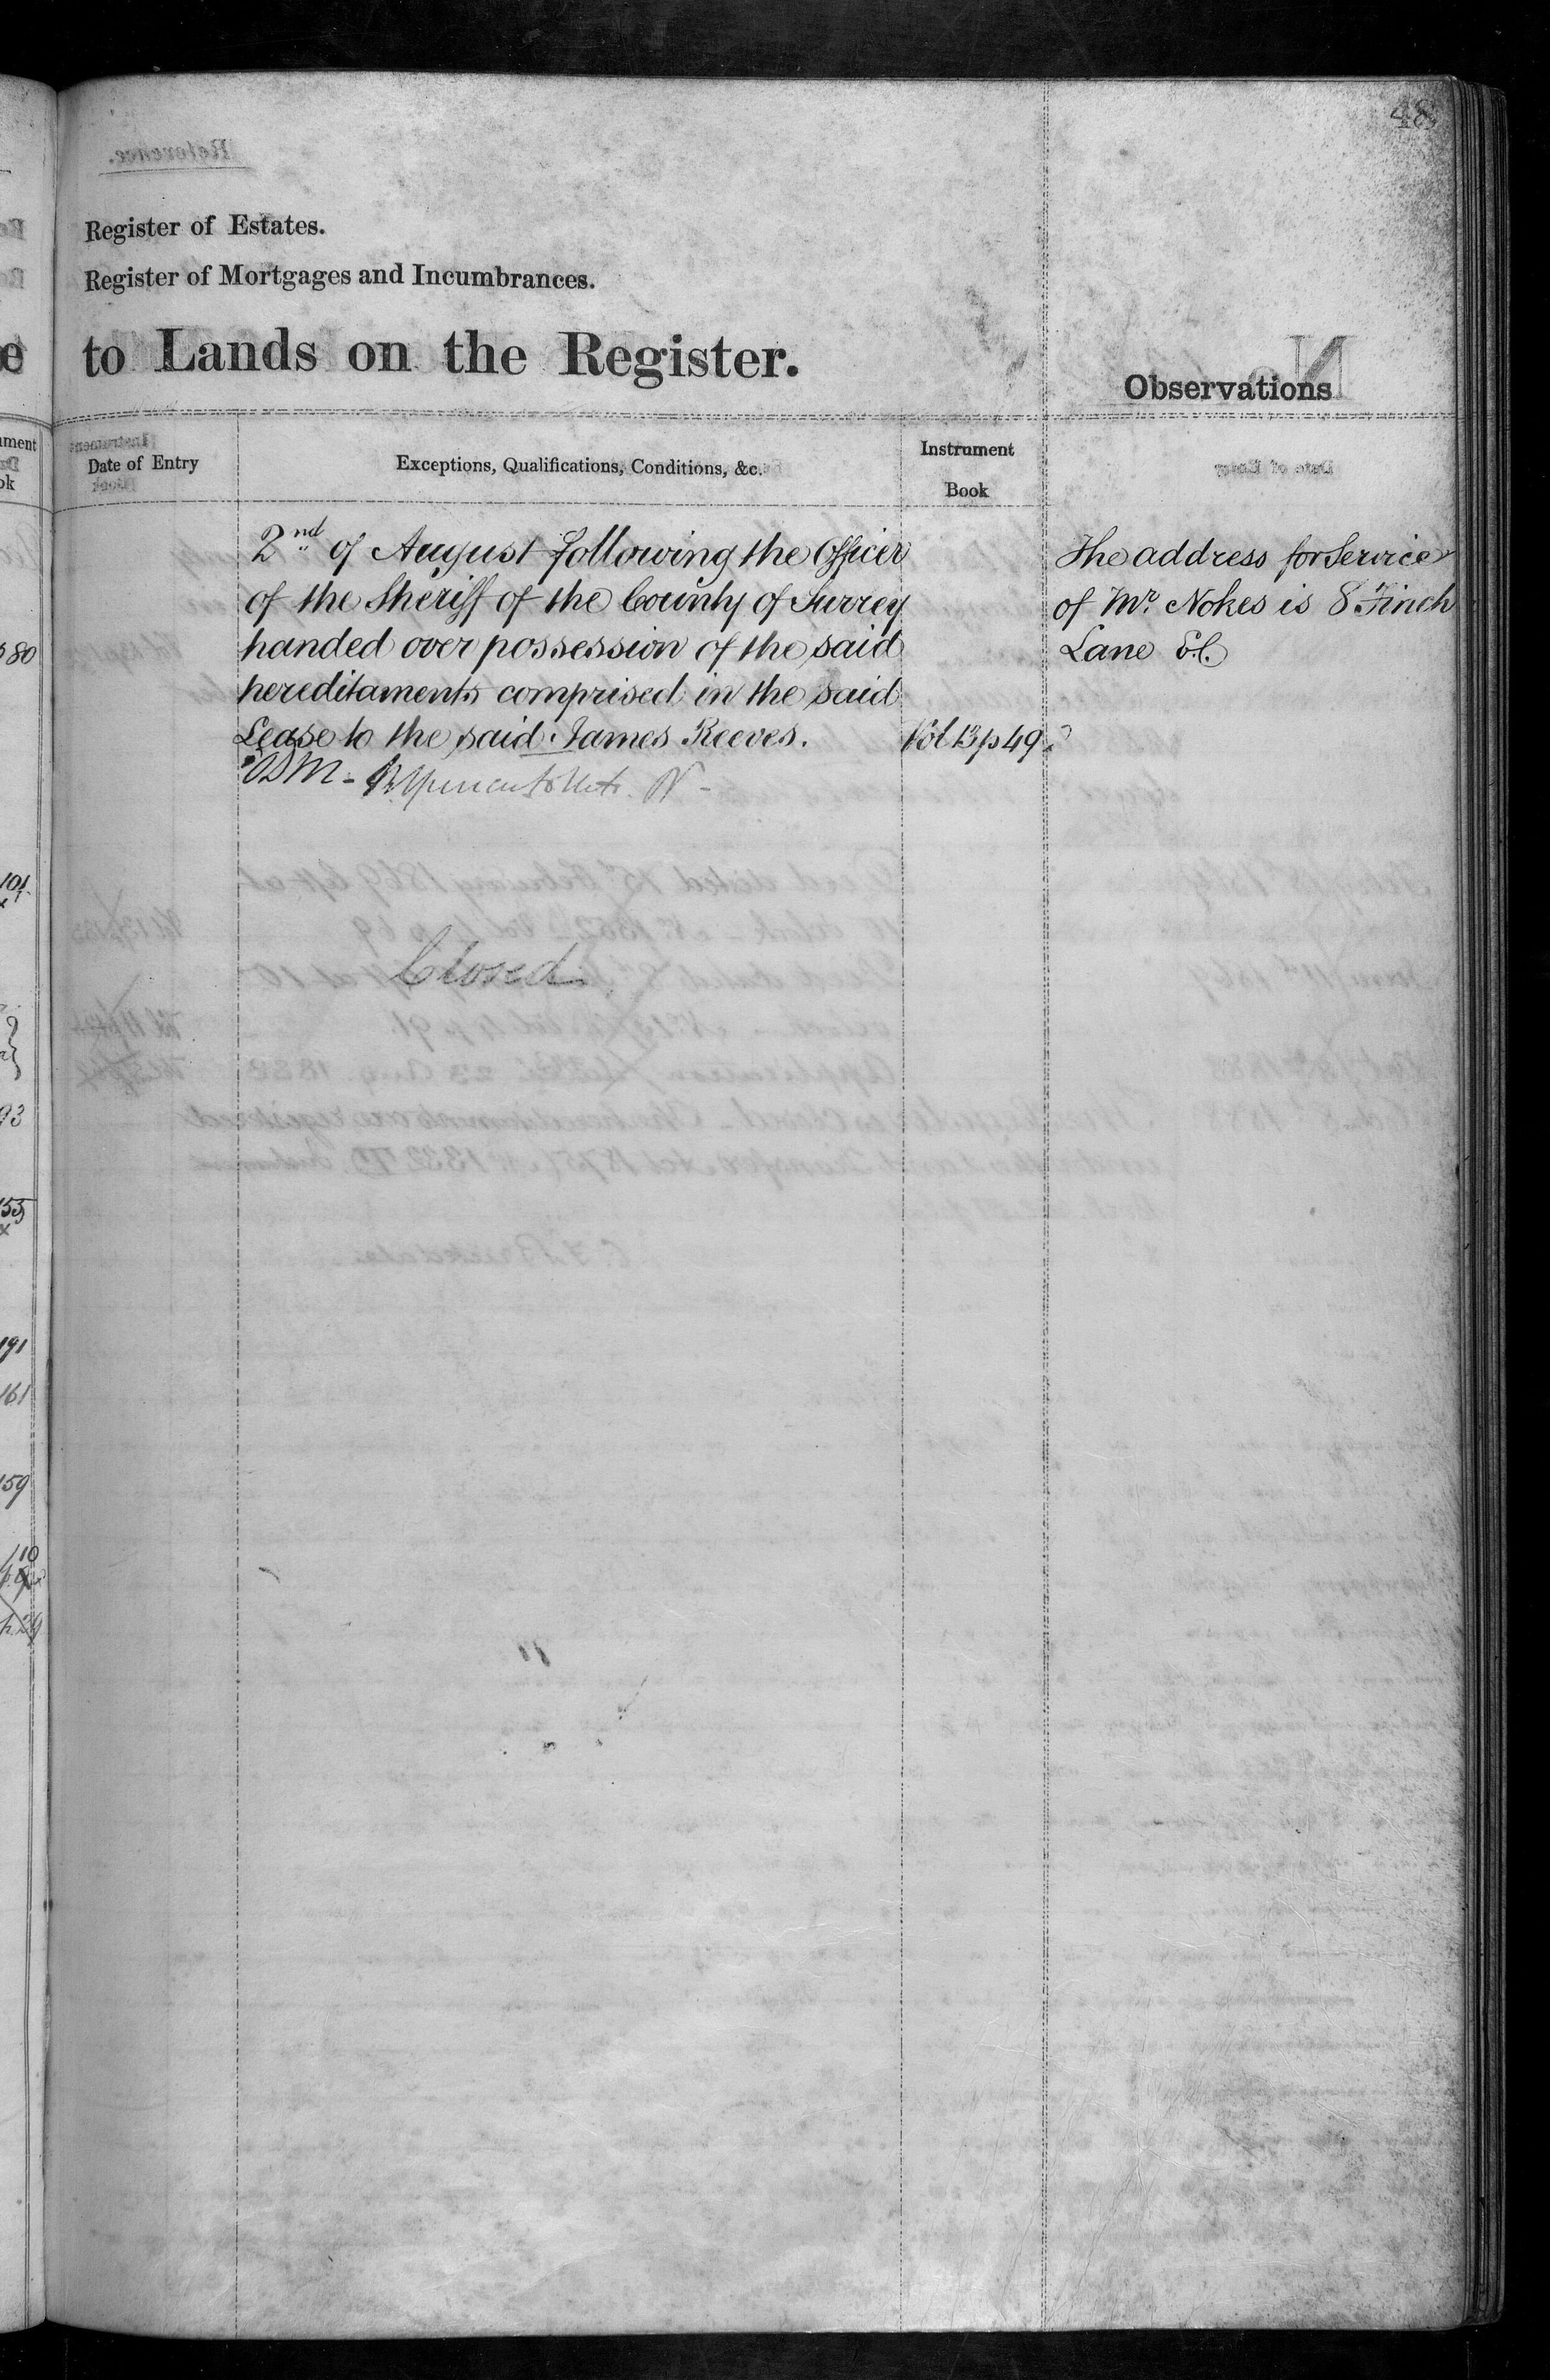 48
Register of Estates.
Register of Mortgages and Incumbrances.
to Lands on the Register.
Observations
Date of Entry
Exceptions, Qualifications, Conditions, &c.
Instrument
Book
2nd of August following the Officer
of the Sheriff of the County of Surrey
handed over possession of the said
hereditaments comprised in the said
Lease to the said James Reeves.
Vol 13 p 49
The address for Service
of Mr. Nokes is 8 Finch
Lane E.C.
Closed.
ment
ok
80
101
93
155
191
161
159
110